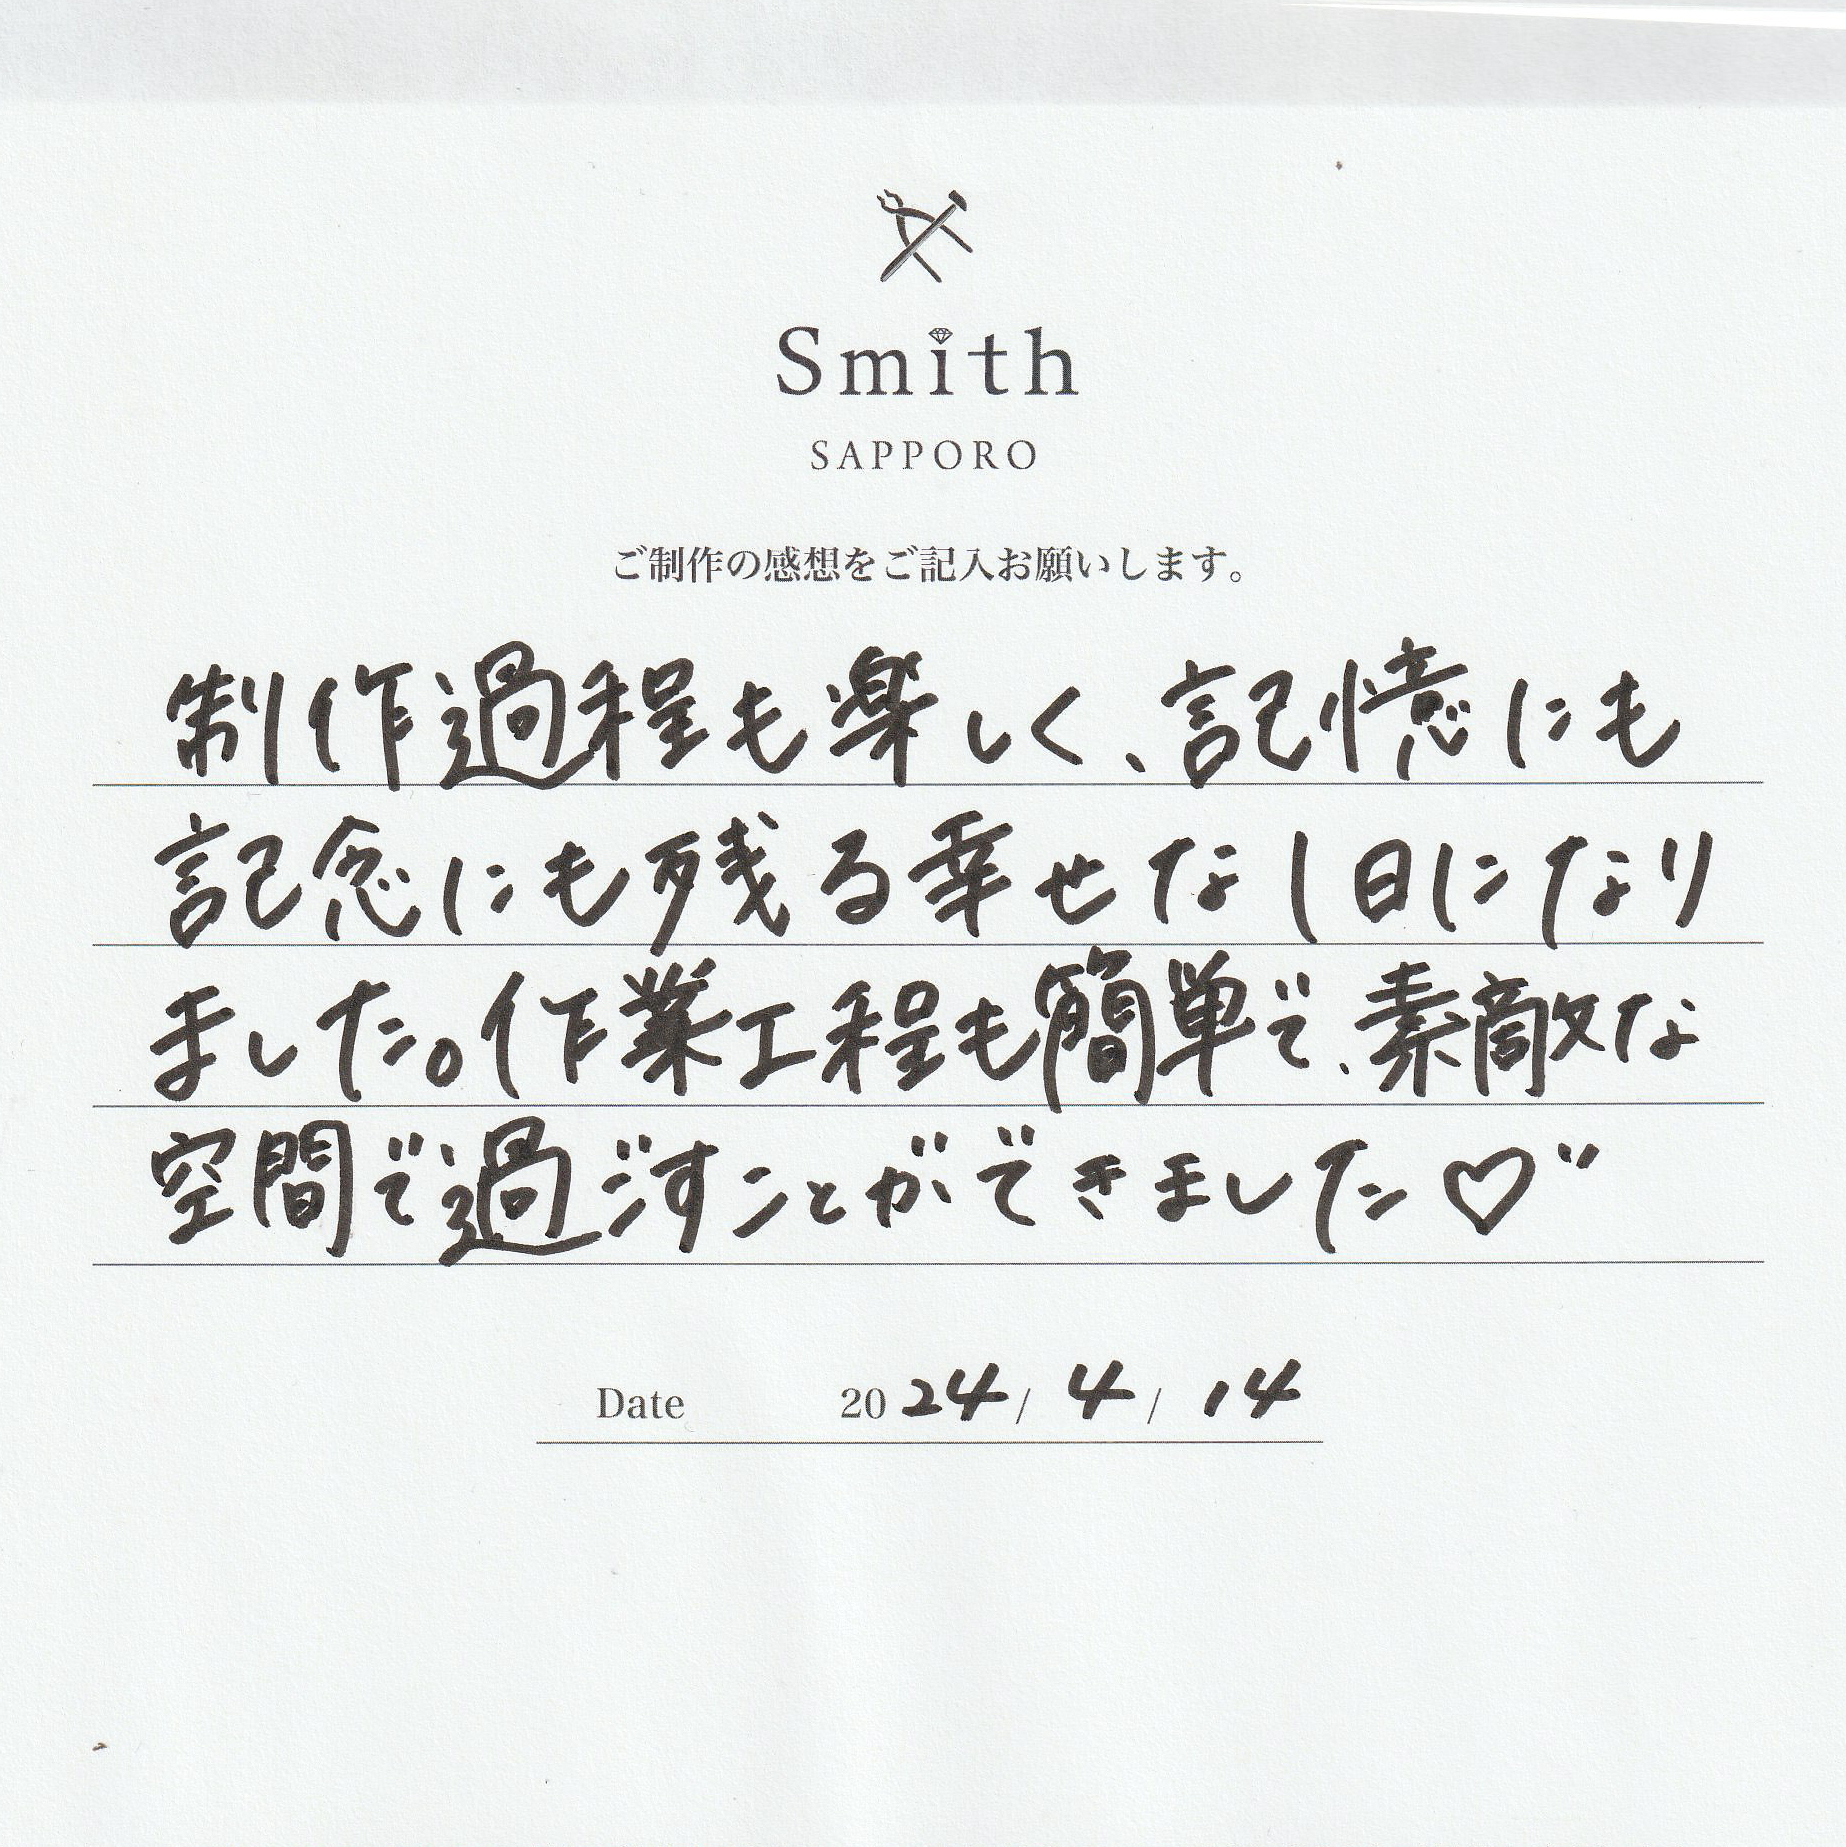 Smith
SAPPORO
ご制作の感想をご記入お願いします。
制作過程も楽しく、記憶にも
記念にも残る幸せな1日になり
ました。作業工程も簡単で、素敵な
空間で過ごすことができました♡"
Date 2024/4/14